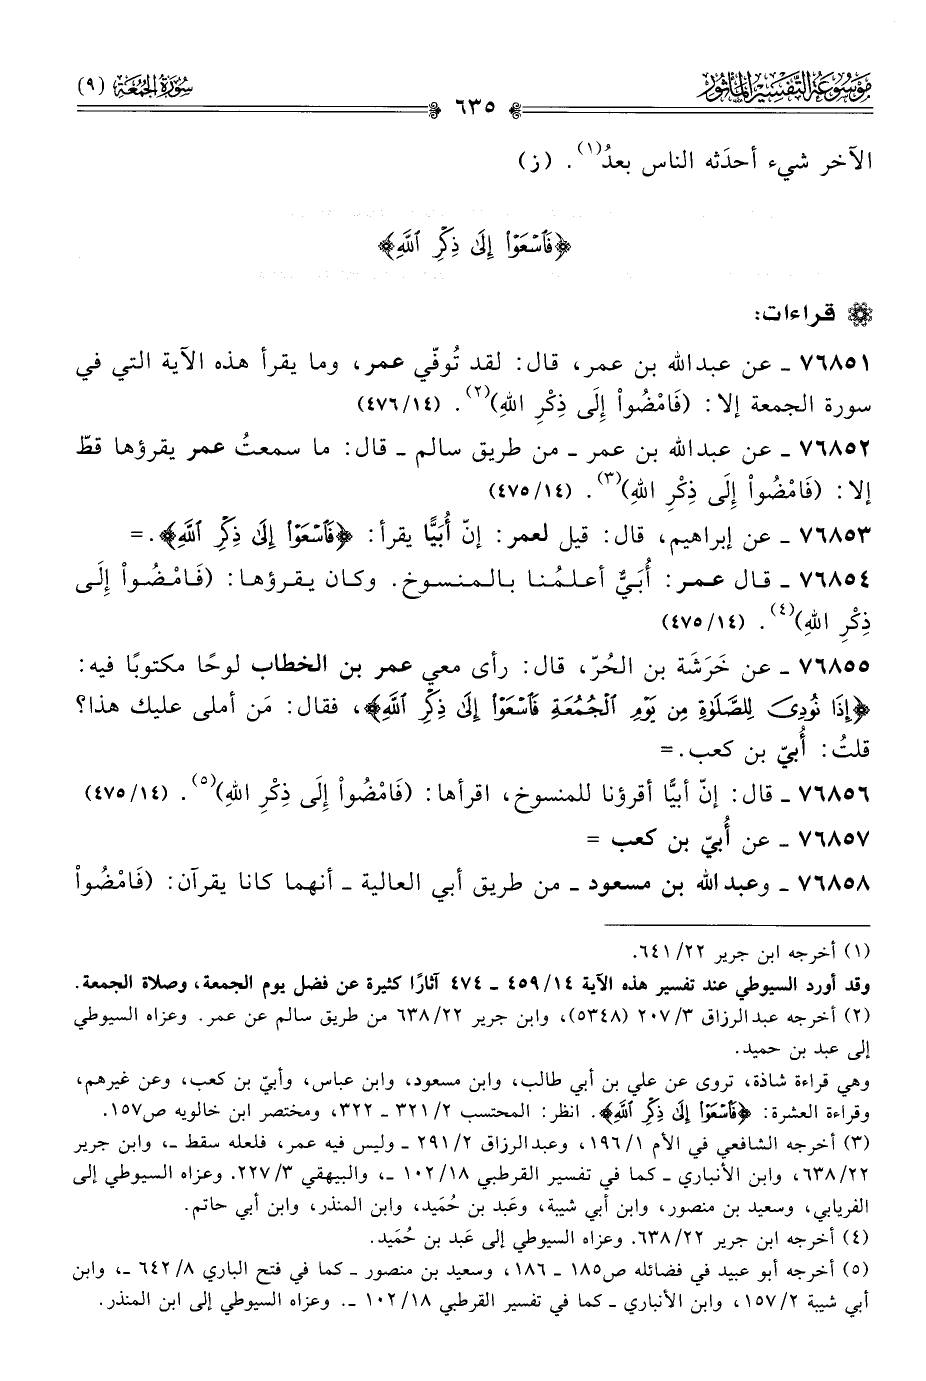 موسوعة التفسير المأثور
٦٣٥
سورة الجمعة (٩)
الآخر شيء أحدَثه الناس بعدُ(١). (ز)
﴿فَٱسۡعَوۡاْ إِلَىٰ ذِكۡرِ ٱللَّهِ﴾
قراءات:
٧٦٨٥١ ـ عن عبدالله بن عمر، قال: لقد تُوفّي عمر، وما يقرأ هذه الآية التي في
سورة الجمعة إلا: (فَامْضُواْ إِلَى ذِكْرِ اللهِ)(٢). (٤٧٦/١٤)
٧٦٨٥٢ ـ عن عبدالله بن عمر ـ من طريق سالم ـ قال: ما سمعتُ عمر يقرؤها قطّ
إلا: (فَامْضُواْ إِلَى ذِكْرِ اللهِ)(٣). (٤٧٥/١٤)
٧٦٨٥٣ ـ عن إبراهيم، قال: قيل لعمر: إنّ أُبَيًّا يقرأ: ﴿فَٱسۡعَوۡاْ إِلَىٰ ذِكۡرِ ٱللَّهِ﴾. =
٧٦٨٥٤ ـ قال عمر: أُبَيٌّ أعلمُنا بالمنسوخ. وكان يقرؤها: (فَامْضُواْ إِلَى
ذِكْرِ اللهِ)(٤). (٤٧٥/١٤)
٧٦٨٥٥ ـ عن خَرَشَة بن الحُرّ، قال: رأى معي عمر بن الخطاب لوحًا مكتوبًا فيه:
﴿إِذَا نُودِىَ لِلصَّلَوٰةِ مِن يَوۡمِ ٱلۡجُمُعَةِ فَٱسۡعَوۡاْ إِلَىٰ ذِكۡرِ ٱللَّهِ﴾، فقال: مَن أملى عليك هذا؟
قلتُ: أُبيّ بن كعب. =
٧٦٨٥٦ ـ قال: إنّ أبيًّا أقرؤنا للمنسوخ، اقرأها: (فَامْضُواْ إِلَى ذِكْرِ اللهِ)(٥). (٤٧٥/١٤)
٧٦٨٥٧ ـ عن أُبيّ بن كعب =
٧٦٨٥٨ ـ وعبدالله بن مسعود ـ من طريق أبي العالية ـ أنهما كانا يقرآن: (فَامْضُواْ
(١) أخرجه ابن جرير ٦٤١/٢٢.
وقد أورد السيوطي عند تفسير هذه الآية ٤٥٩/١٤ ـ ٤٧٤ آثارًا كثيرة عن فضل يوم الجمعة، وصلاة الجمعة.
(٢) أخرجه عبدالرزاق ٢٠٧/٣ (٥٣٤٨)، وابن جرير ٦٣٨/٢٢ من طريق سالم عن عمر. وعزاه السيوطي
إلى عبد بن حميد.
وهي قراءة شاذة، تروى عن علي بن أبي طالب، وابن مسعود، وابن عباس، وأبيّ بن كعب، وعن غيرهم،
وقراءة العشرة: ﴿فَٱسۡعَوۡاْ إِلَىٰ ذِكۡرِ ٱللَّهِ﴾. انظر: المحتسب ٣٢١/٢ ـ ٣٢٢، ومختصر ابن خالويه ص١٥٧.
(٣) أخرجه الشافعي في الأم ١٩٦/١، وعبدالرزاق ٢٩١/٢ ـ وليس فيه عمر، فلعله سقط ـ، وابن جرير
٦٣٨/٢٢، وابن الأنباري ـ كما في تفسير القرطبي ١٠٢/١٨ ـ، والبيهقي ٢٢٧/٣. وعزاه السيوطي إلى
الفريابي، وسعيد بن منصور، وابن أبي شيبة، وعَبد بن حُمَيد، وابن المنذر، وابن أبي حاتم.
(٤) أخرجه ابن جرير ٦٣٨/٢٢. وعزاه السيوطي إلى عَبد بن حُمَيد.
(٥) أخرجه أبو عبيد في فضائله ص١٨٥ ـ ١٨٦، وسعيد بن منصور ـ كما في فتح الباري ٦٤٢/٨ ـ، وابن
أبي شيبة ١٥٧/٢، وابن الأنباري ـ كما في تفسير القرطبي ١٠٢/١٨ ـ. وعزاه السيوطي إلى ابن المنذر.